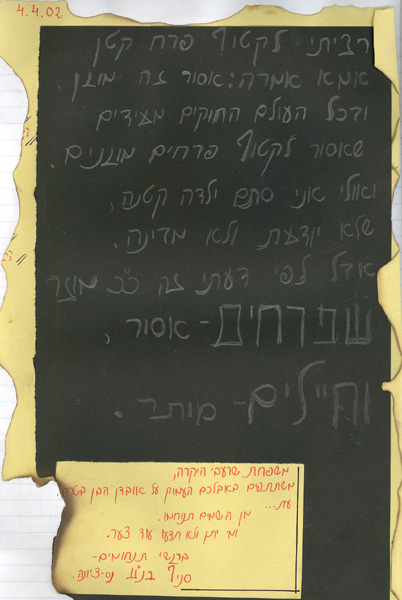 4.4.02
רציתי לקטוף פרח קטן
אמא אמרה: אסור זה מוגן,
ובכל העולם החוקים מעידים
שאסור לקטוף פרחים מוגנים.
ואולי אני סתם ילדה קטנה,
שלא יודעת ולא מבינה.
אבל לפי דעתי זה כ"כ מוזר
שפרחים - אסור,
וחיילים - מותר.
משפחת שרעבי היקרה,
משתתפים באבלכם העמוק על אובדן הבן בטרם
עת...
מן השמים תנוחמו.
ומי יתן ולא תדעו עוד צער.
ברגשי תנחומים -
סניף בנ"ע נס-ציונה.